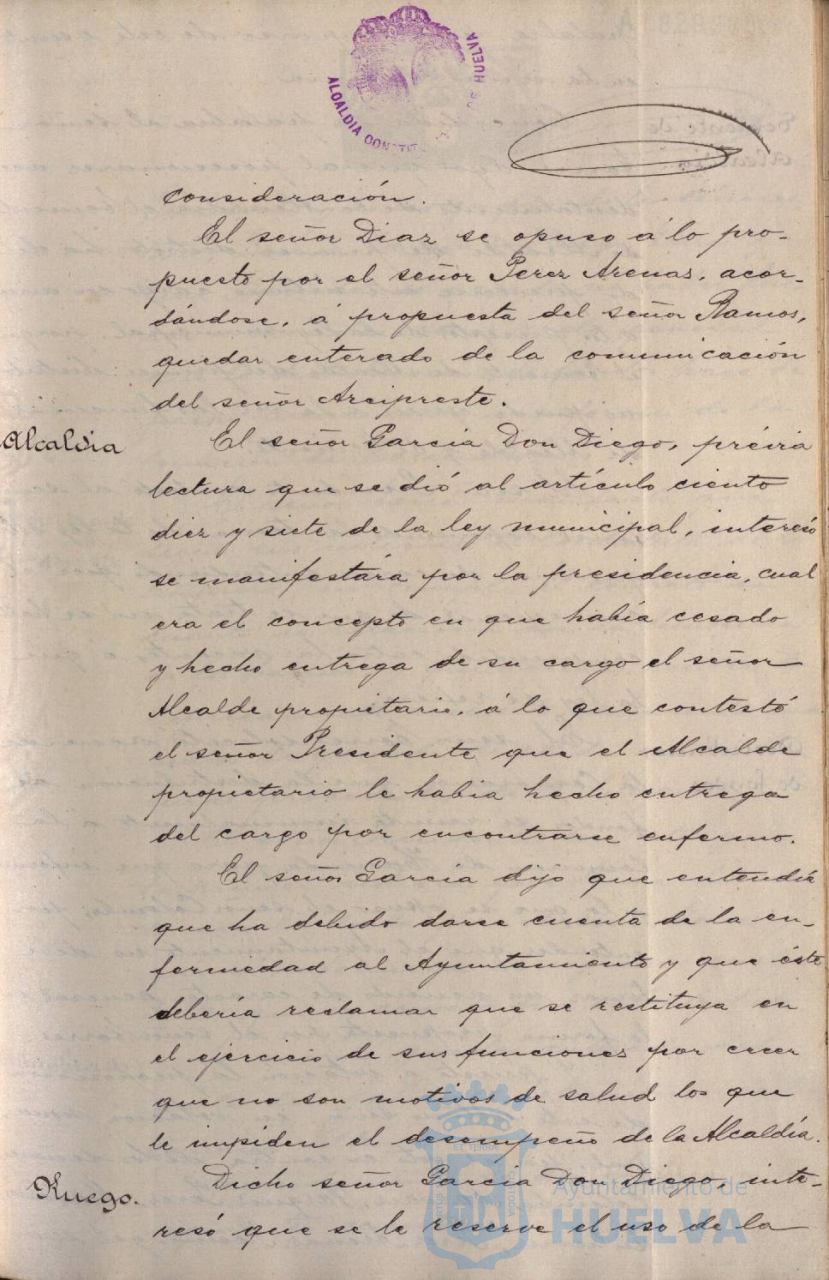 ALCALDIA CONSTIT DE HUELVA
consideración.
El señor Diaz se opuso á lo pro-
puesto por el señor Perez Arenas, acor-
dándose, á propuesta del señor Ramos,
quedar enterado de la comunicación
del señor Arcipreste.
Alcaldia
El señor Garcia Don Diego, prévia
lectura que se dió al artículo ciento
diez y siete de la ley municipal, interesó
se manifestára por la presidencia, cual
era el concepto en que había cesado
y hecho entrega de su cargo el señor
Alcalde propietario, á lo que contestó
el señor Presidente que el Alcalde
propietario le habia hecho entrega
del cargo por encontrarse enfermo.
El señor Garcia dijo que entendía
que ha debido darse cuenta de la en-
fermedad al Ayuntamiento y que éste
debería reclamar que se restituya en
el ejercicio de sus funciones por creer
que no son motivos de salud los que
le impiden el desempeño de la Alcaldía.
Ruego.
Dicho señor Garcia Don Diego, inte-
resó que se le reserve el uso de la
Ayuntamiento de
HUELVA